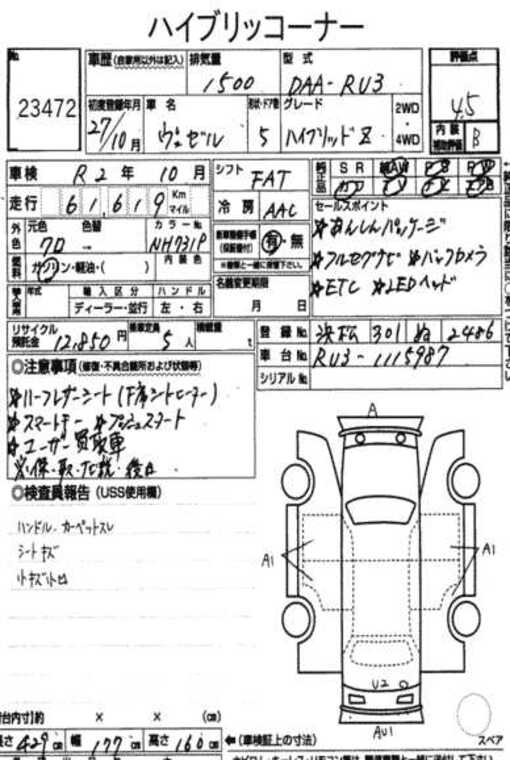 ハイブリッコーナー
No.
23472
車歴 (自家用以外は記入)
排気量
1500
型式
DAA-RU3
評価点
4.5
初度登録年月
27/10月
車名
ヴェゼル
形状・ドア数
5
グレード
ハイブリッドZ
2WD
4WD
内装
補助評価
B
車検
R2年 10月
シフト
FAT
純正品
SR
AW
PS
PW
走行
61,619
Km
マイル
冷房
AAC
セールスポイント
*あんしんパッケージ
*フルセグナビ *バックカメラ
*ETC *LEDヘッド
外色
元色
色替
クロ →
カラーNo
NH731P
内装色
新車整備手帳
(保証書付)
有・無
燃料
ガソリン・軽油・( )
名義変更期限
月 日
輸入車
年式
輸入区分
ハンドル
ディーラー・並行
左・右
リサイクル
預託金
12,850円
乗車定員
5人
積載量
t
登録No
浜松 301 ぬ 2486
車台No
RU3-1115987
シリアルNo
◎注意事項 (修復・不具合箇所および状態等)
*ハーフレザーシート(F席シートヒーター)
*スマートキー *プッシュスタート
*ユーザー買取車
※保・取・ナビ説・後日
◎検査員報告 (USS使用欄)
ハンドル、カーペットスレ
シートキズ
A
A1
A1
U2
AU1
スペア
荷台内寸)約 × × (cm)
長さ 429 cm 幅 177 cm 高さ 160 cm
←(車検証上の寸法)